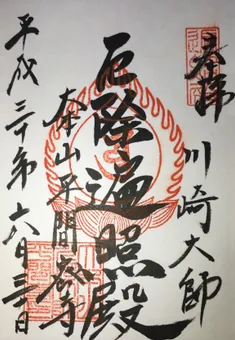 奉拝
川崎大師
厄除遍照殿
本山平間寺
平成三十年六月三日